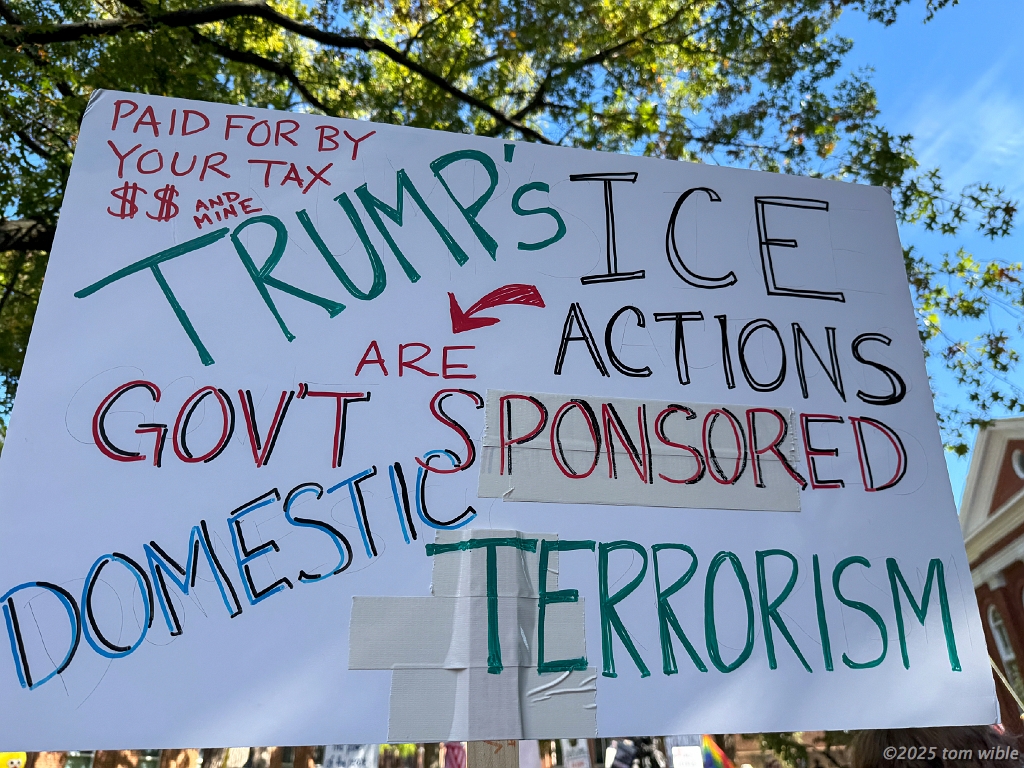 PAID FOR BY
YOUR TAX
$$ AND MINE
TRUMP's ICE
ACTIONS
ARE
GOV'T SPONSORED
DOMESTIC
TERRORISM
©2025 tom wible